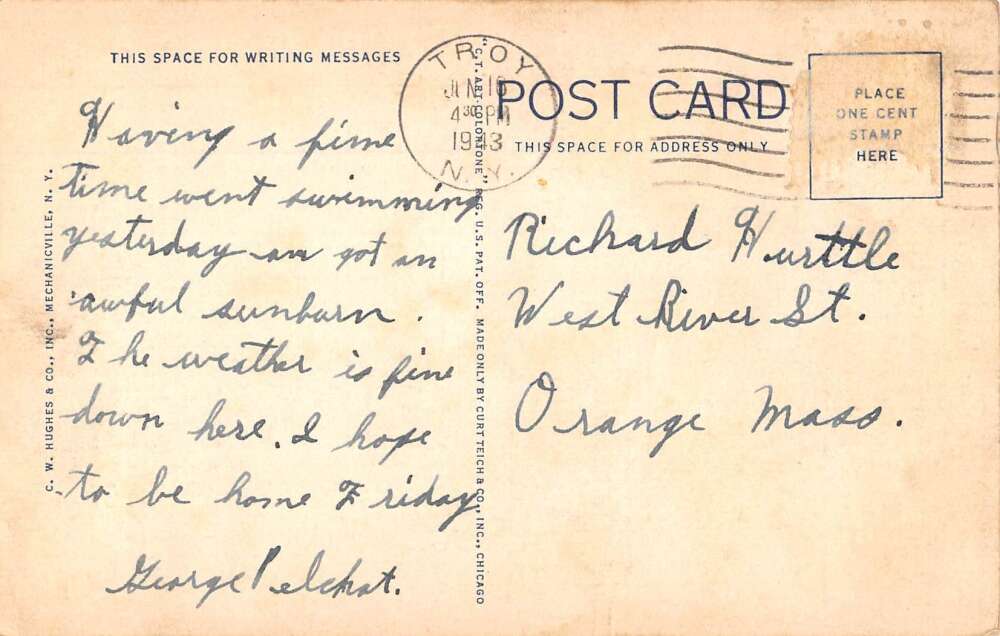 THIS SPACE FOR WRITING MESSAGES
Having a fine
time went swimming
yesterday an got an
awful sunburn.
The weather is fine
down here. I hope
to be home Friday
George Pelchat.
C. W. HUGHES & CO., INC., MECHANICVILLE, N. Y.
"C.T. ART-COLORTONE" REG. U.S. PAT. OFF. MADE ONLY BY CURT TEICH & CO., INC., CHICAGO
TROY
JUN 16
4 30 PM
1943
N.Y.
POST CARD
THIS SPACE FOR ADDRESS ONLY
PLACE
ONE CENT
STAMP
HERE
Richard Hurttle
West River St.
Orange Mass.